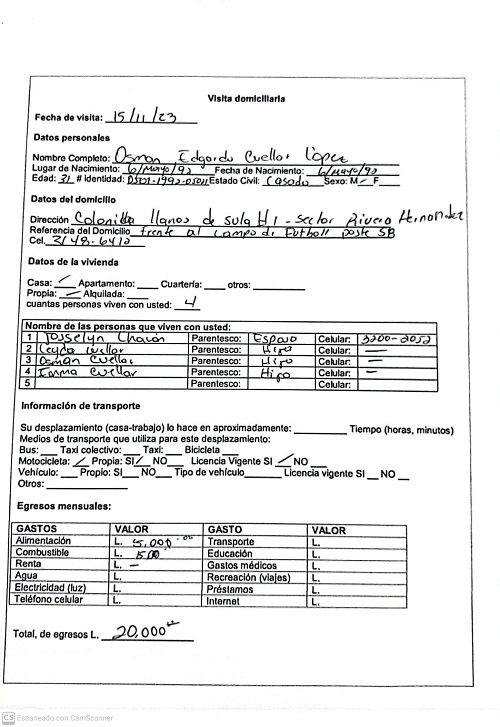 Visita domiciliaria
Fecha de visita: 15/11/23
Datos personales
Nombre Completo: Osman Edgardo Cuellar López
Lugar de Nacimiento: 6/mayo/92 Fecha de Nacimiento: 6/mayo/92
Edad: 31 # Identidad: Estado Civil: Casado Sexo: M ✓ F
Datos del domicilio
Dirección Colonitta llanos de sula H1 - Sector Rivera Hernandez
Referencia del Domicilio frente al campo de Futboll poste SB
Cel. 3148-6410
Datos de la vivienda
Casa: ✓ Apartamento: Cuartería: otros:
Propia: ✓ Alquilada:
cuantas personas viven con usted: 4
Nombre de las personas que viven con usted:
1 Josselyn Chacon Parentesco: Esposo Celular: 3200-2052
2 Leyda cuellar Parentesco: Hija Celular: —
3 Osman Cuellar Parentesco: Hijo Celular: —
4 Emma Cuellar Parentesco: Hija Celular: —
5 Parentesco: Celular:
Información de transporte
Su desplazamiento (casa-trabajo) lo hace en aproximadamente: Tiempo (horas, minutos)
Medios de transporte que utiliza para este desplazamiento:
Bus: Taxi colectivo: Taxi: Bicicleta
Motocicleta: ✓ Propia: SI ✓ NO Licencia Vigente SI ✓ NO
Vehículo: Propio: SI NO Tipo de vehículo Licencia vigente SI NO
Otros:
Egresos mensuales:
GASTOS VALOR GASTO VALOR
Alimentación L. 5,000.00 Transporte L.
Combustible L. 1500 Educación L.
Renta L. — Gastos médicos L.
Agua L. Recreación (viajes) L.
Electricidad (luz) L. Préstamos L.
Teléfono celular L. Internet L.
Total, de egresos L. 20,000
CS Escaneado con CamScanner